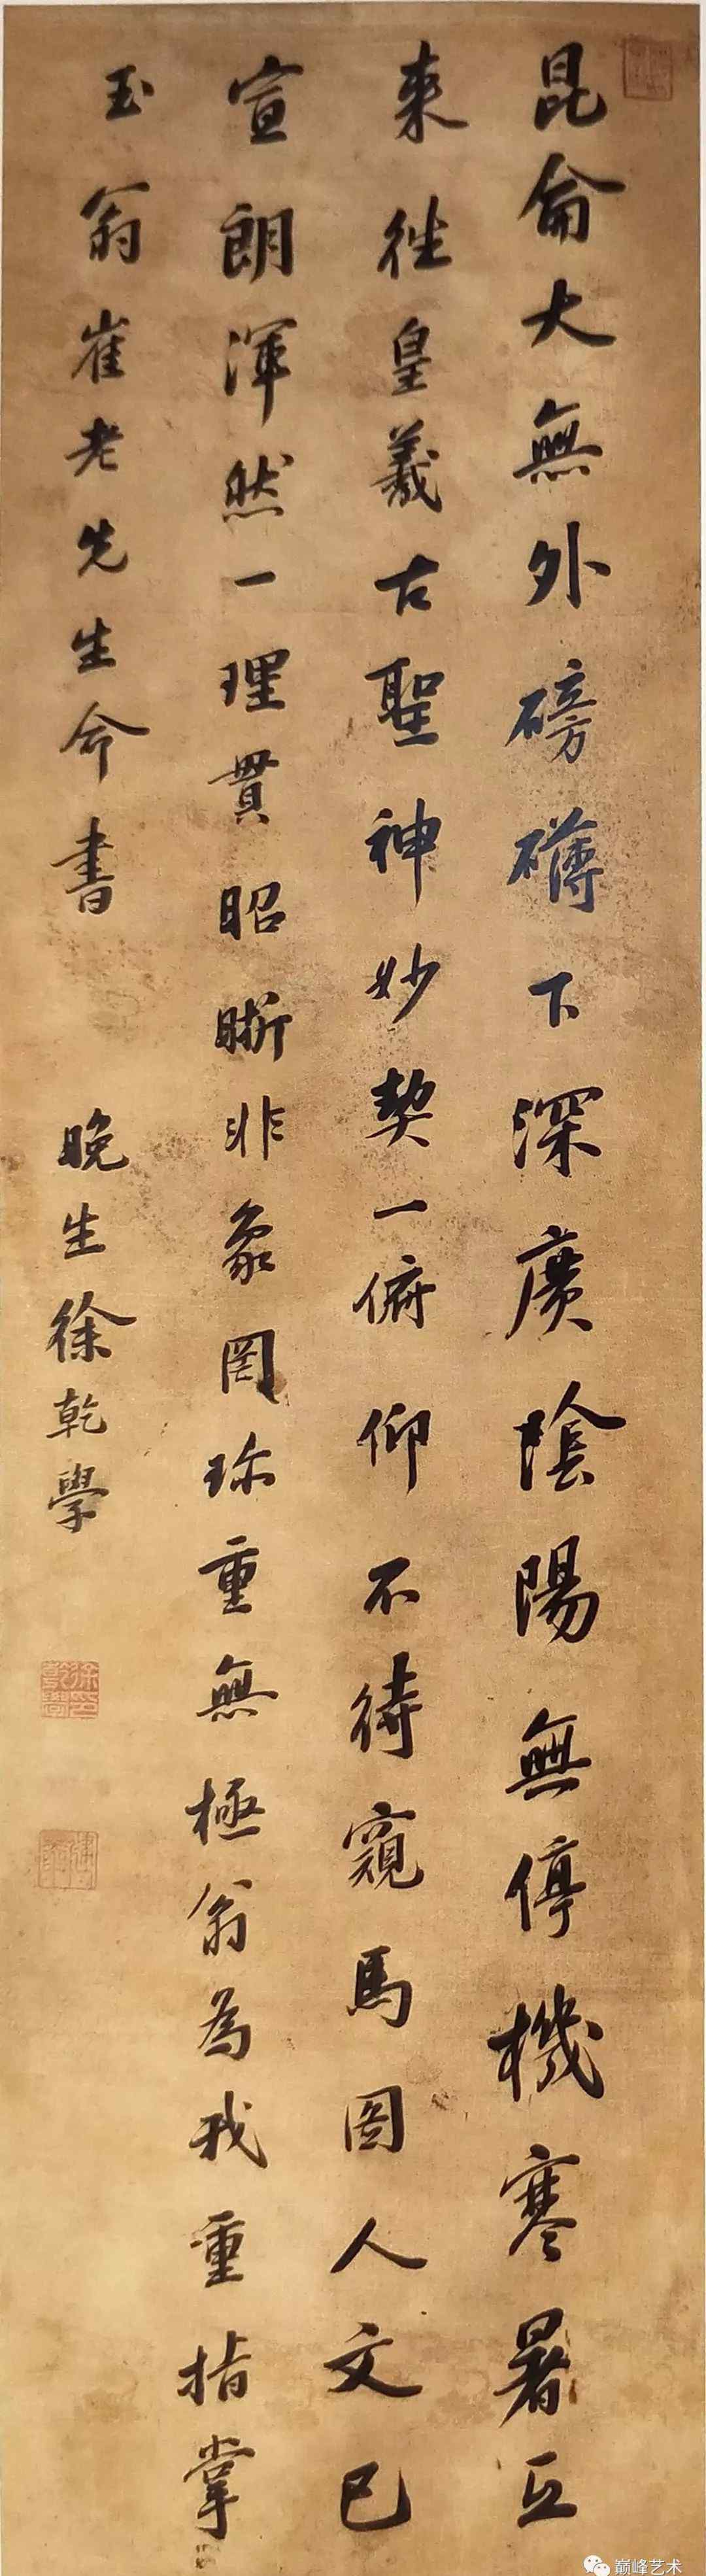 昆侖大無外磅礴下深廣陰陽無停機寒暑互
来徃皇羲古聖神妙契一俯仰不待窺馬圖人文已
宣朗渾然一理貫昭晣非象罔珎重無極翁為我重指掌
玉翁崔老先生命書
晚生徐乾學
徐乾學印
巅峰艺术